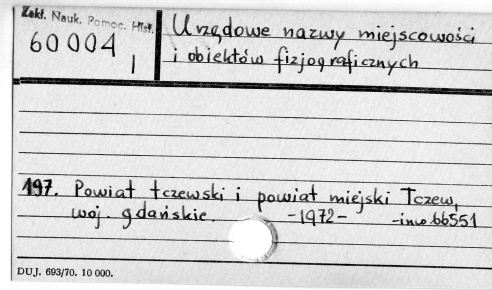 Zakł. Nauk. Pomoc. Hist.
60004
I
Urzędowe nazwy miejscowości
i obiektów fizjograficznych
197. Powiat tczewski i powiat miejski Tczew,
woj. gdańskie. -1972- -inw. 66551
DUJ. 693/70. 10 000.